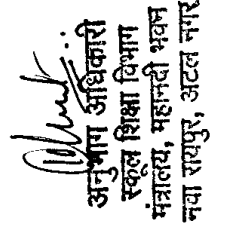 अनुभाग अधिकारी
स्कूल शिक्षा विभाग
मंत्रालय, महानदी भवन
नवा रायपुर, अटल नगर